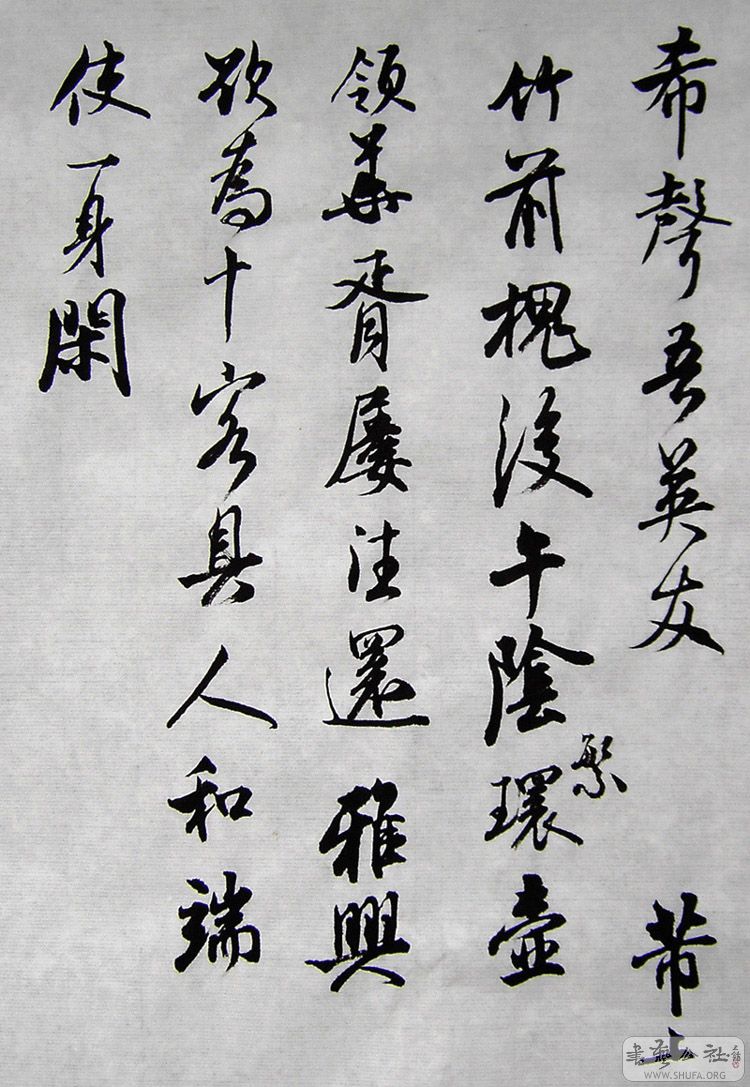 希聲吾英友 芾
竹前槐後午陰繁環壺
領華胥屢往還雅興
欲為十客具人和端
使一身閑
書藝公社
WWW.SHUFA.ORG